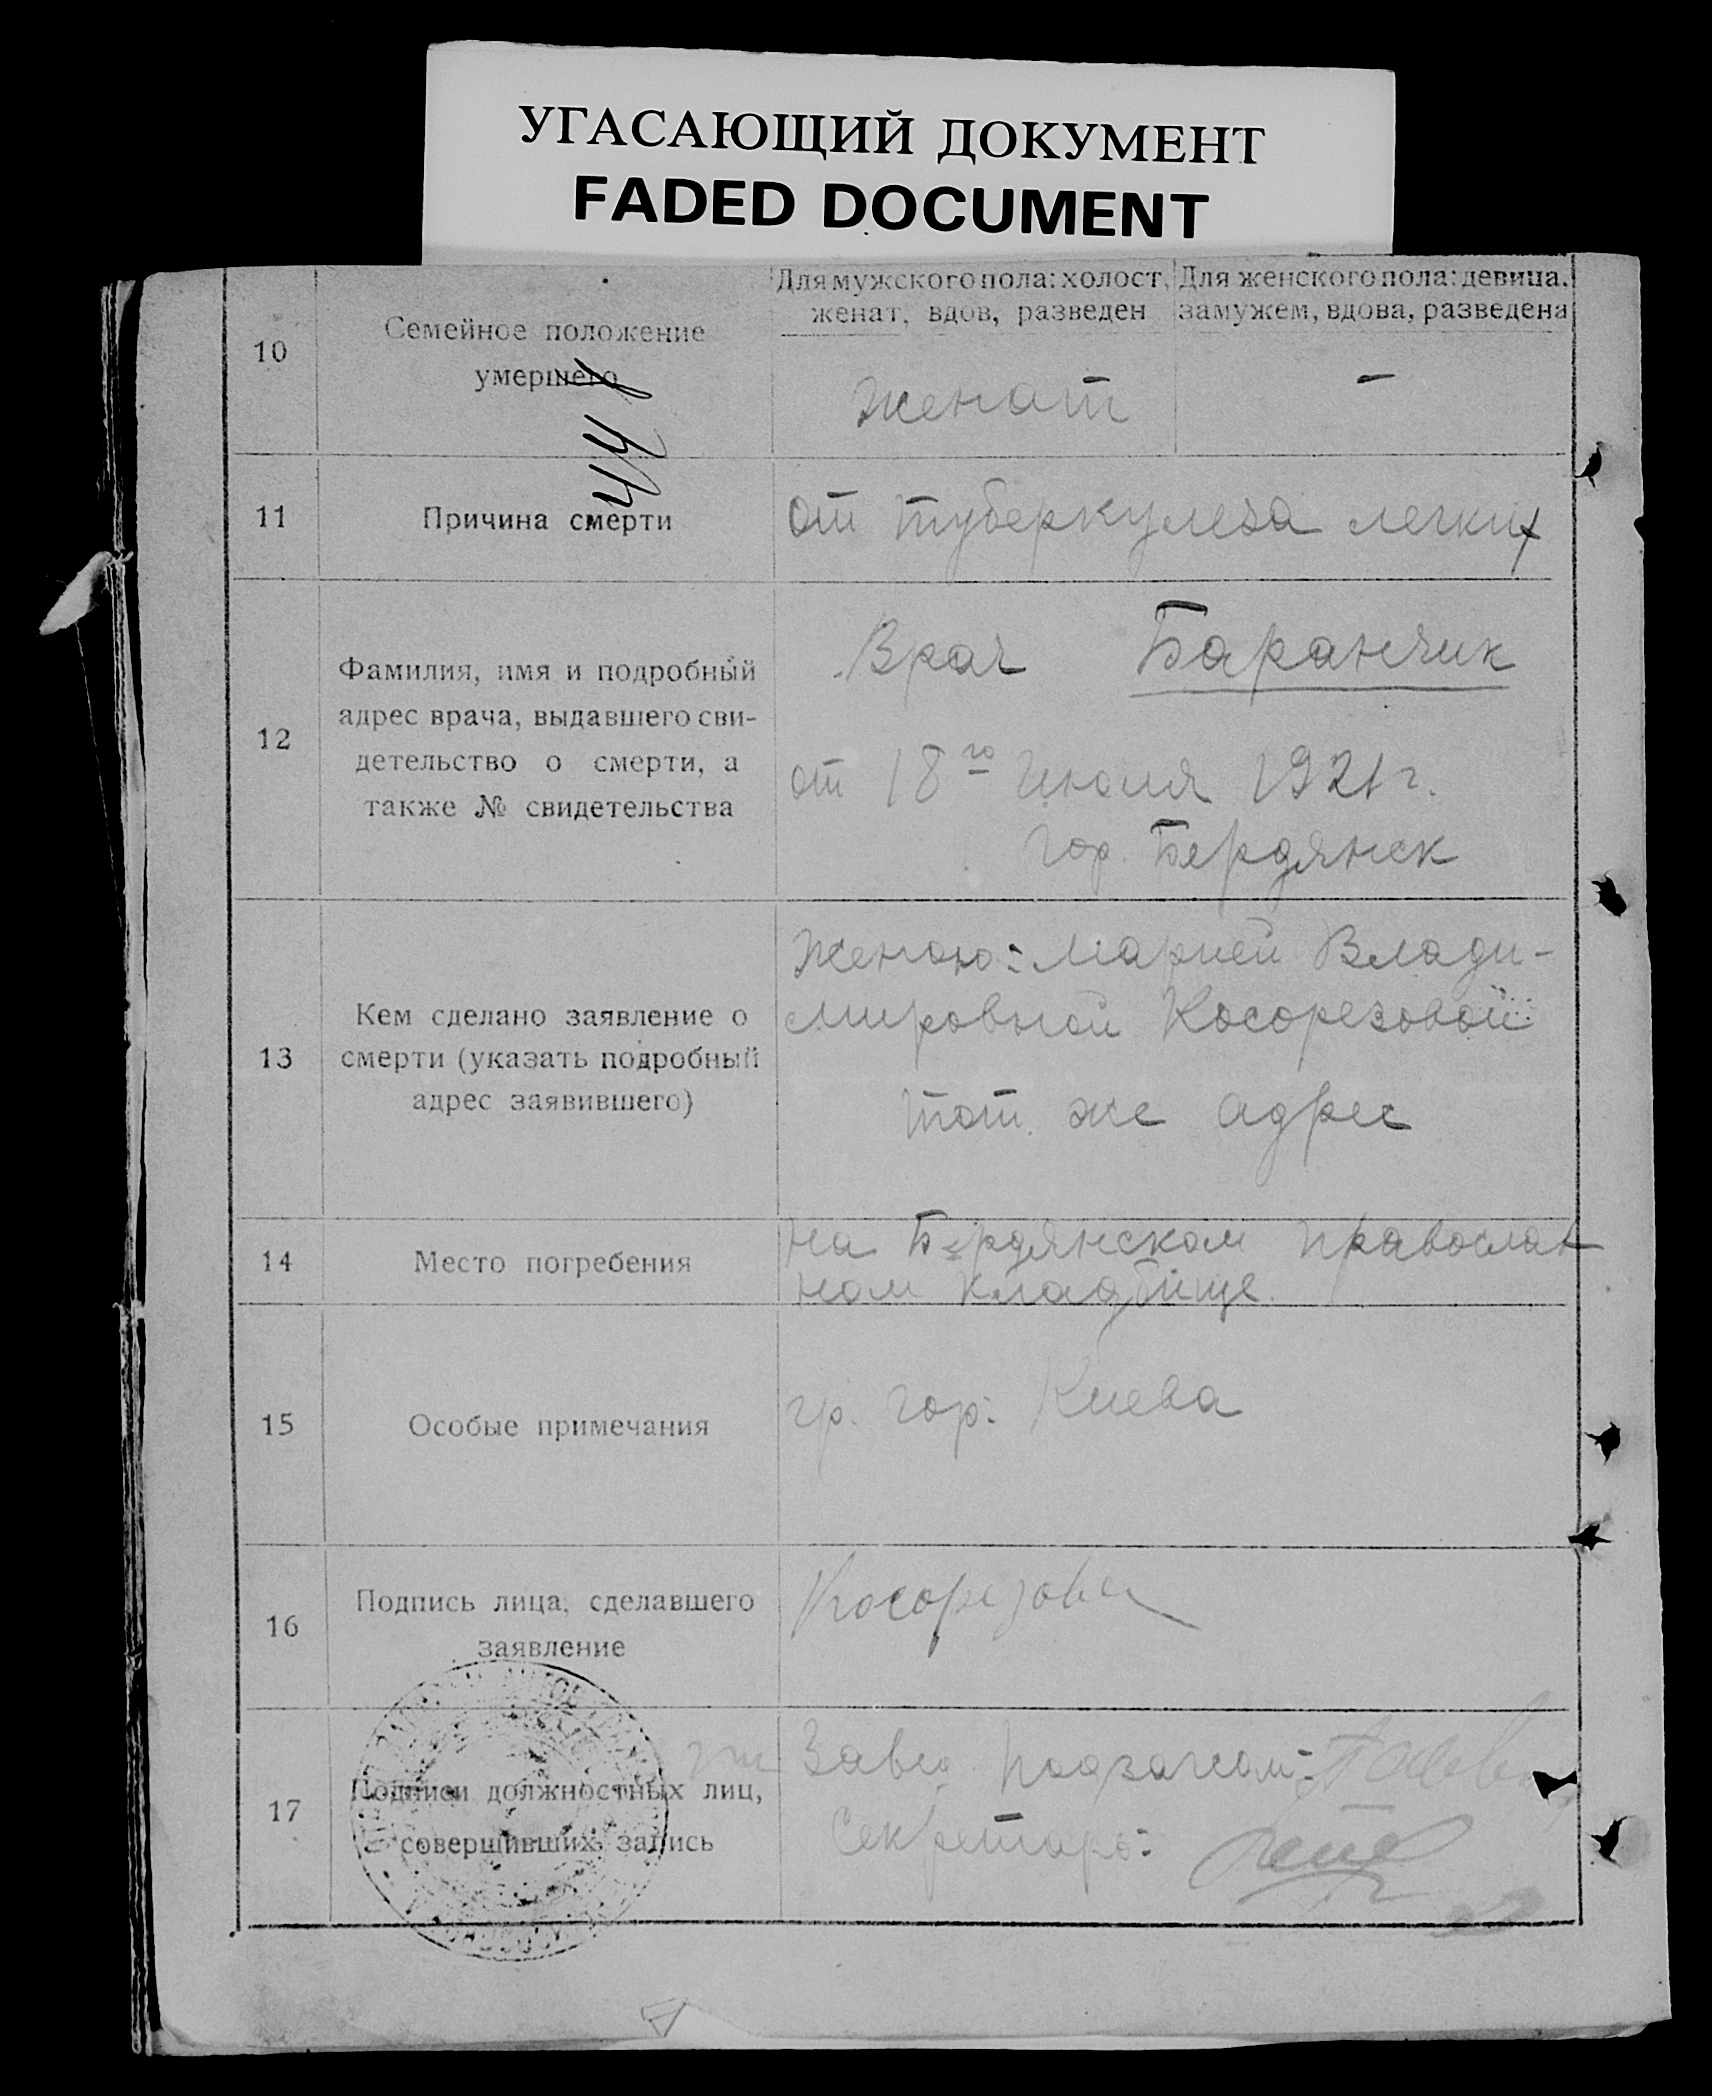 УГАСАЮЩИЙ ДОКУМЕНТ
FADED DOCUMENT
10
Семейное положение
умершего
Для мужского пола: холост,
женат, вдов, разведен
Для женского пола: девица,
замужем, вдова, разведена
Женат
—
44
11
Причина смерти
От туберкулеза легких
12
Фамилия, имя и подробный
адрес врача, выдавшего сви-
детельство о смерти, а
также № свидетельства
Врач Баранчик
от 18го Июля 1921 г.
гор. Бердянск
13
Кем сделано заявление о
смерти (указать подробный
адрес заявившего)
Женою: Марией Влади-
мировной Косорезовой
тот же адрес
14
Место погребения
На Бердянском православ
ном кладбище.
15
Особые примечания
гр. гор. Киева
16
Подпись лица, сделавшего
заявление
Косорезова
17
Подписи должностных лиц,
совершивших запись
Завед
Секретарь: